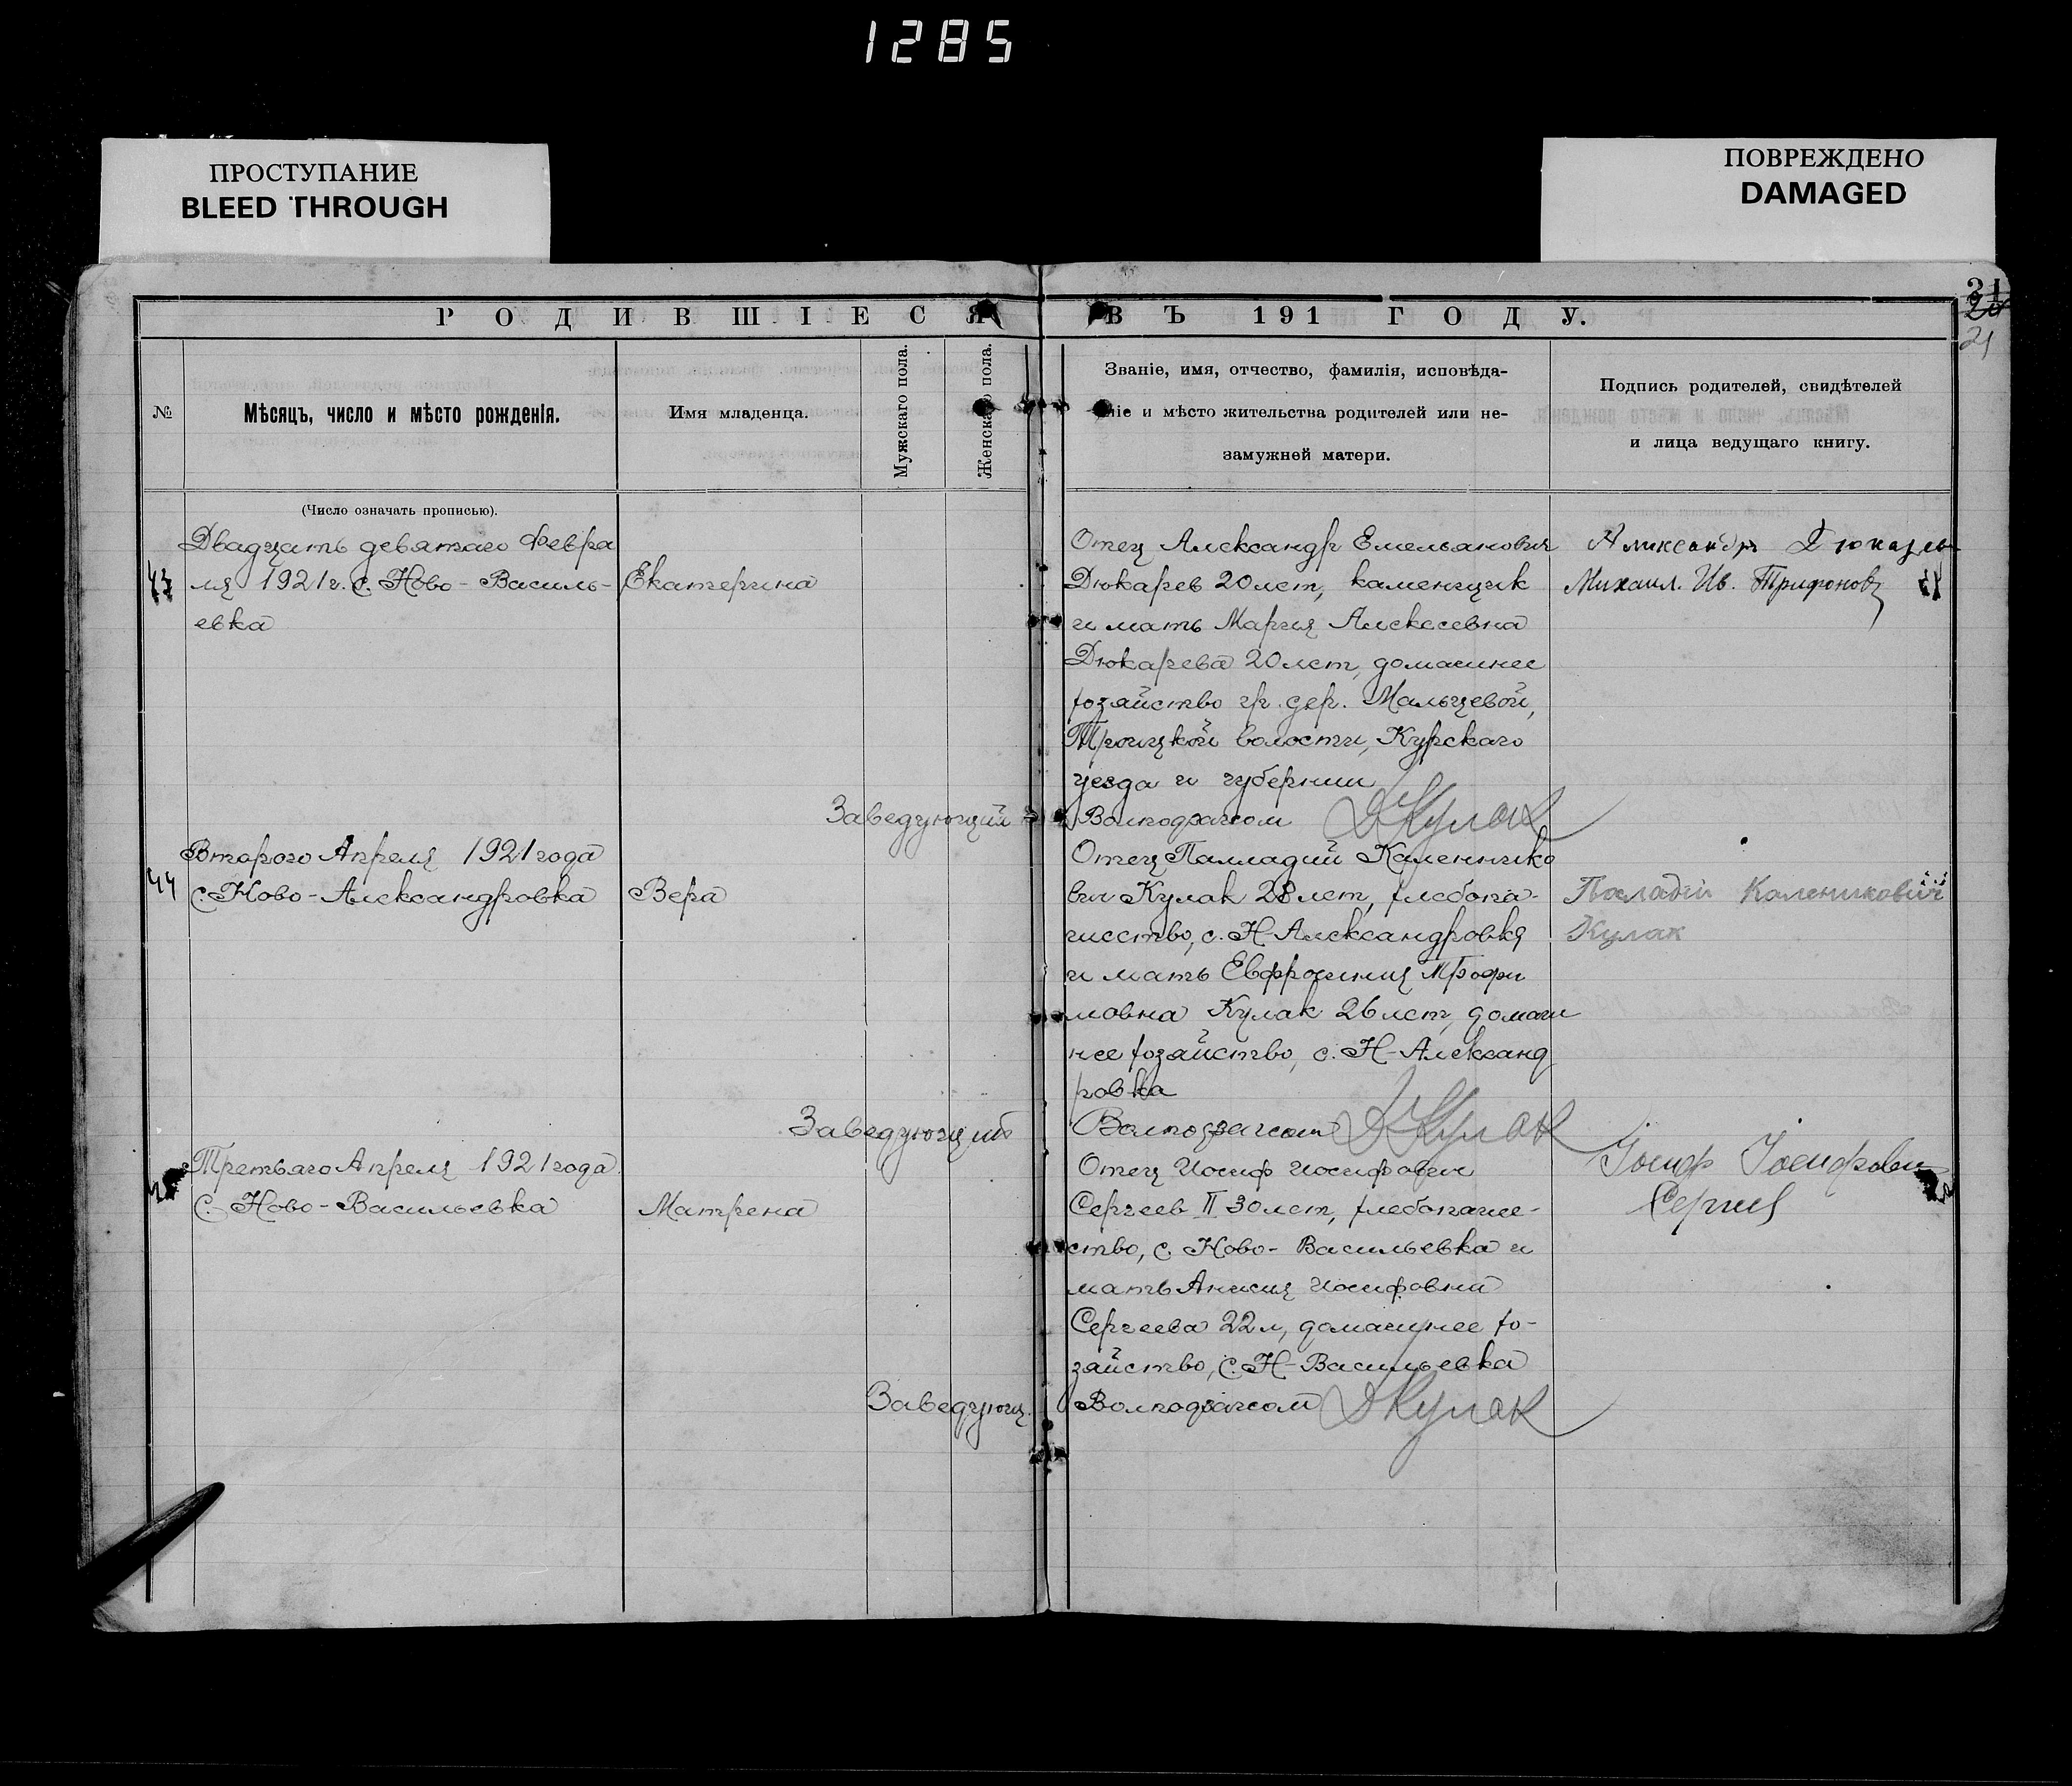 1285
ПРОСТУПАНИЕ
BLEED THROUGH
ПОВРЕЖДЕНО
DAMAGED
РОДИВШІЕСЯ ВЪ 191 ГОДУ.
21
21
№
Мѣсяцъ, число и мѣсто рожденія.
Имя младенца.
Мужскаго пола.
Женскаго пола.
Званіе, имя, отчество, фамилія, исповѣда-
ніе и мѣсто жительства родителей или не-
замужней матери.
Подпись родителей, свидѣтелей
и лица ведущаго книгу.
(Число означать прописью).
43
Двадцать девятаго Февра
ля 1921 г. с. Ново-Василь-
евка
Екатерина
Отец Александр Емельянович
Дюкарев 20 лет, каменщик
и мать Мария Алексеевна
Дюкарева 20 лет, домашнее
хозяйство гр. дер. Мальцевой,
Троицкой волости, Курскаго
уезда и губернии
Михаил. Ив. Трифонов
Заведующий Волподзагсом ДКулак
44
Второго Апреля 1921 года
с. Ново-Александровка
Вера
Отец Палладий Каленнико
вич Кулак 28 лет, хлебопа-
шество, с. Н-Александровка
и мать Евфросиния Трофи
мовна Кулак 26 лет, домаш
нее хозяйство, с. Н-Александ
ровка
Паладій Каленикович
Кулак
Заведующий Волподзагсом ДКулак
Третьяго Апреля 1921 года
с. Ново-Васильевка
Матрена
Отец Иосиф Иосифович
Сергеев II 30 лет, хлебопаше-
ство, с. Ново-Васильевка и
мать Анисия Иосифовна
Сергеева 22 л, домашнее хо-
зяйство, с. Н-Васильевка
Іосиф Іосифович
Заведующ. Волподзагсом ДКулак